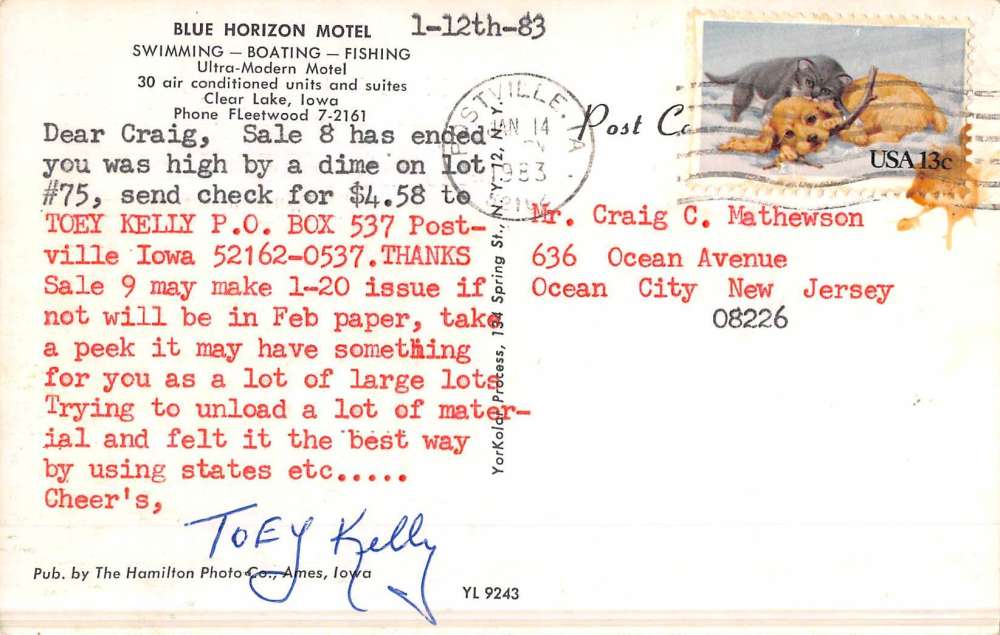 BLUE HORIZON MOTEL
SWIMMING — BOATING — FISHING
Ultra-Modern Motel
30 air conditioned units and suites
Clear Lake, Iowa
Phone FLeetwood 7-2161
1-12th-83
Dear Craig, Sale 8 has ended
you was high by a dime on lot
#75, send check for $4.58 to
TOEY KELLY P.O. BOX 537 Post-
ville Iowa 52162-0537.THANKS
Sale 9 may make 1-20 issue if
not will be in Feb paper, take
a peek it may have something
for you as a lot of large lots
Trying to unload a lot of mater-
ial and felt it the best way
by using states etc.....
Cheer's,
TOEY Kelly
Pub. by The Hamilton Photo Co., Ames, Iowa
YL 9243
YorKolor Process, 134 Spring St., N.Y. 12, N.Y.
POSTVILLE, IA
JAN 14
1983
Post
USA 13c
Mr. Craig C. Mathewson
636 Ocean Avenue
Ocean City New Jersey
08226